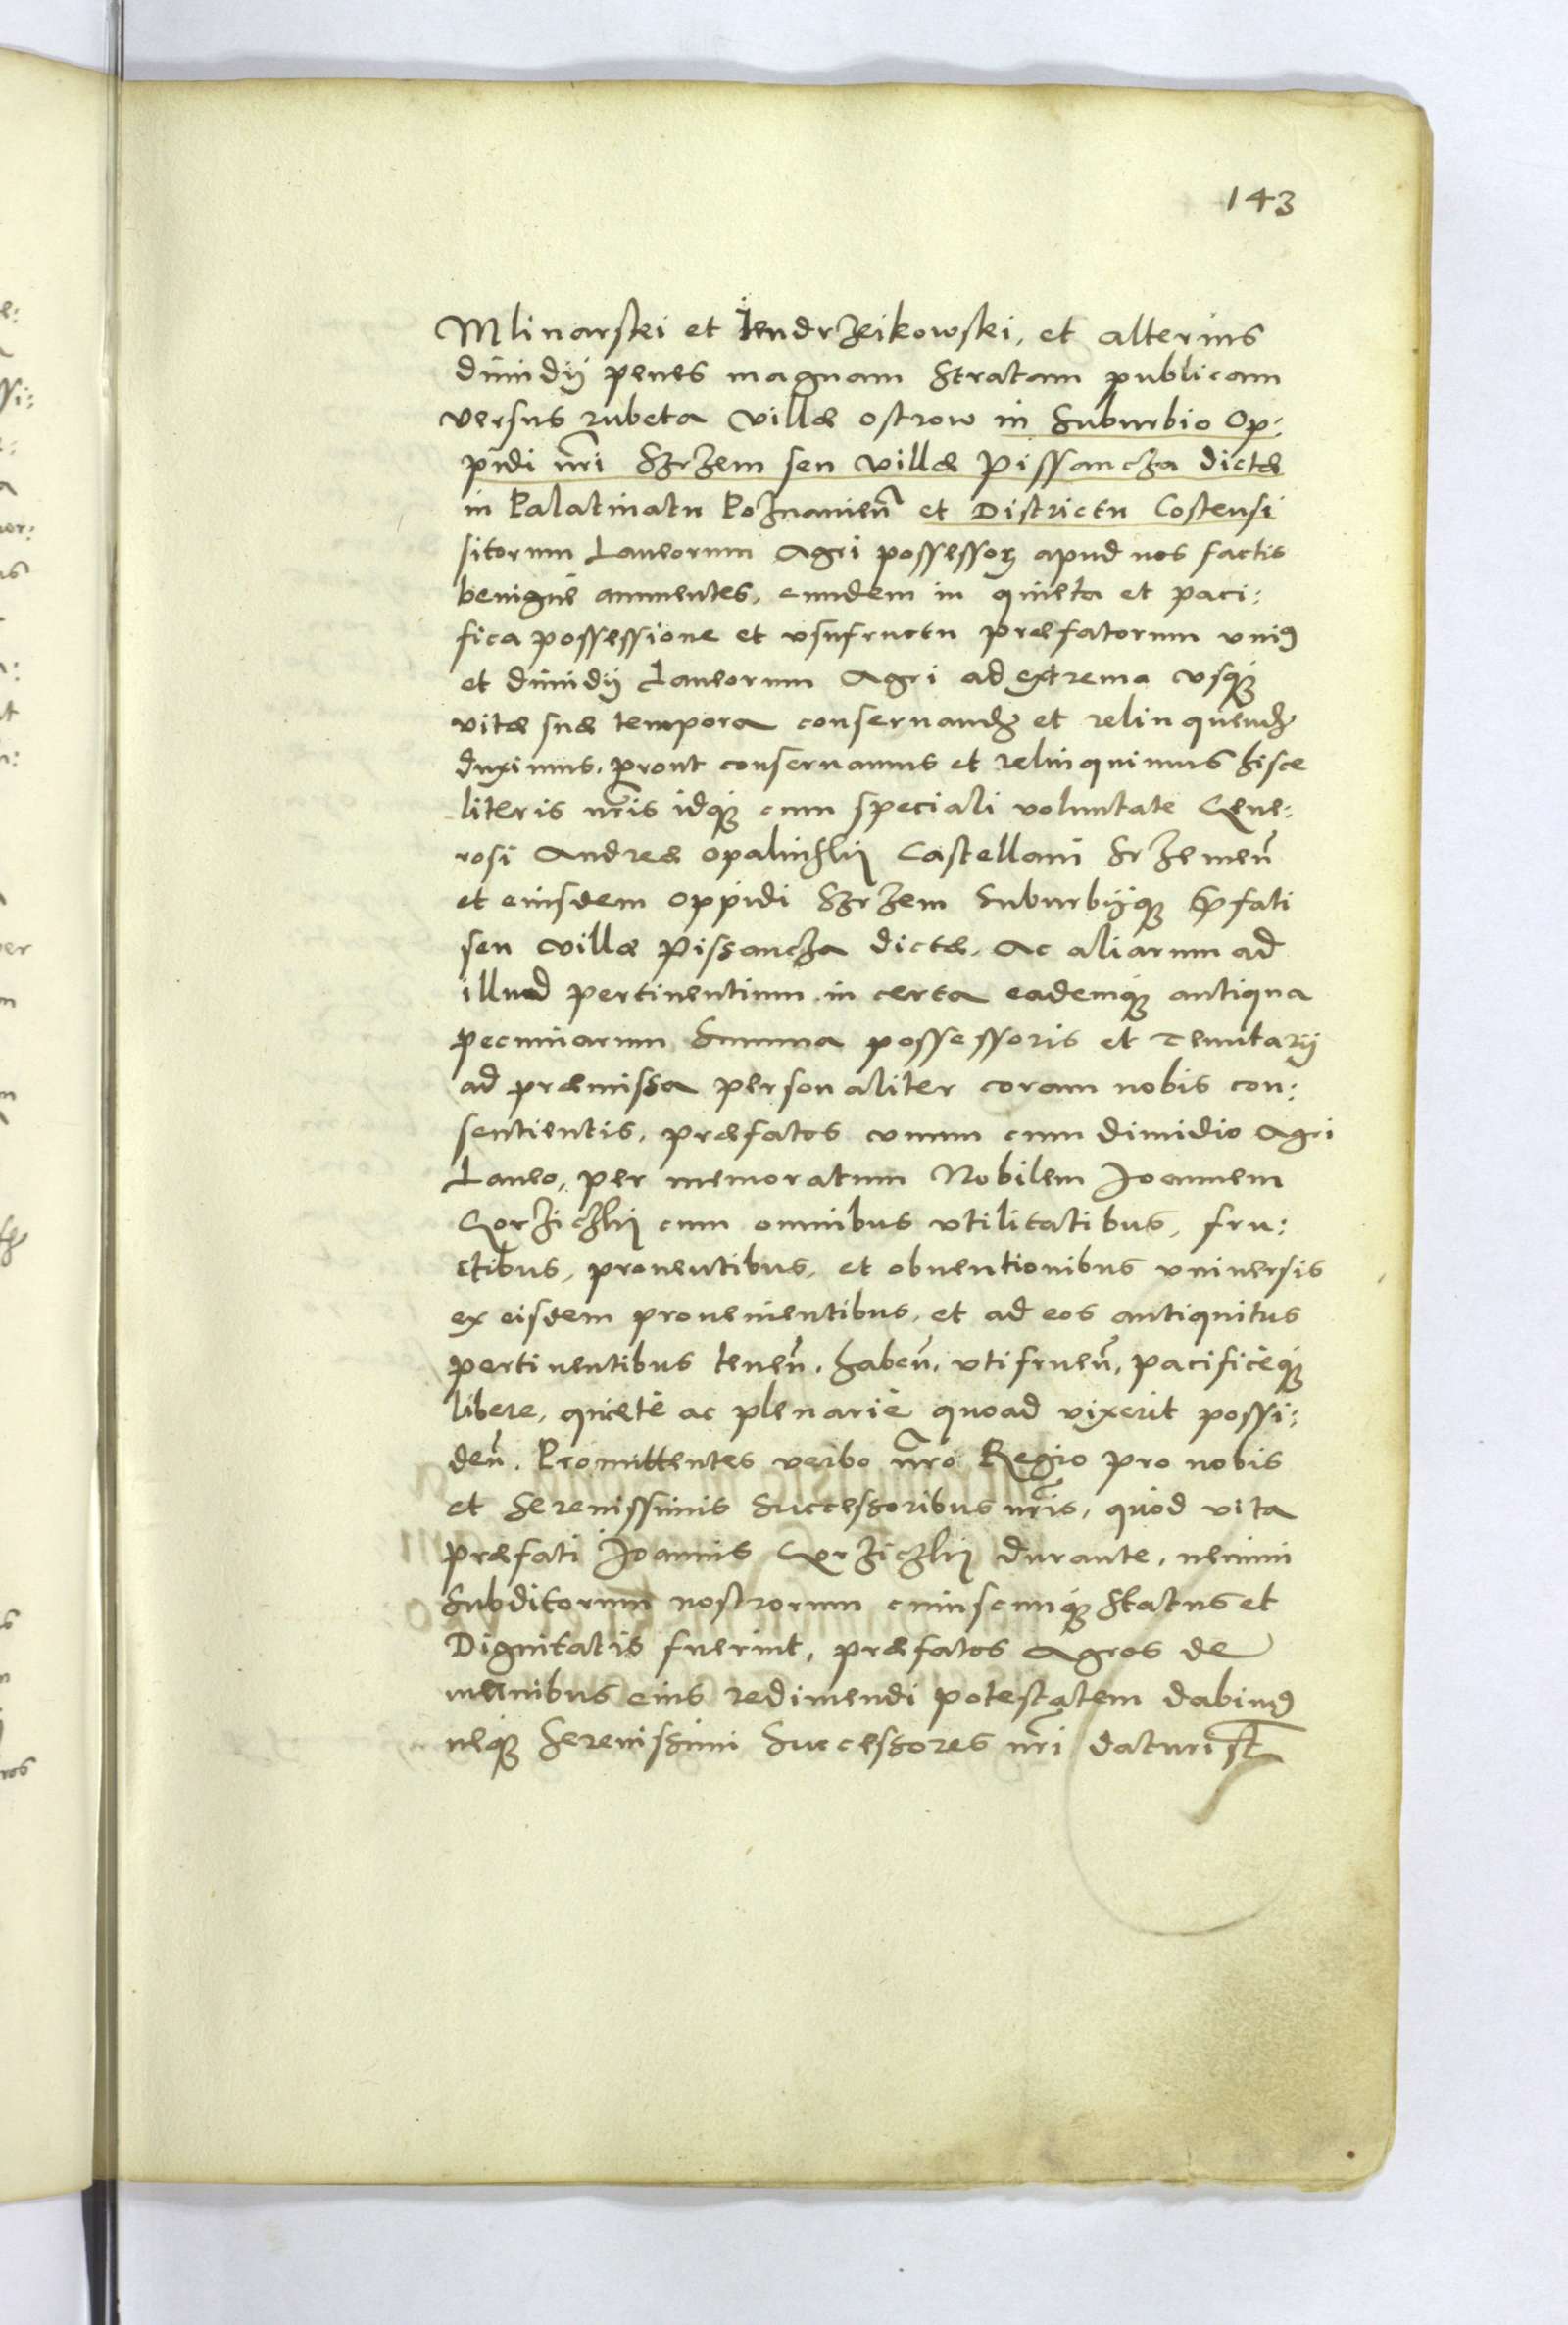 143
Mlinarski et Iendrzeikowski, et alterius
dimidij penes magnam Stratam publicam
versus rubeta Villæ ostrow in Suburbio Op:
pidi nri̅ Szrzem seu villæ Pissancza dictæ
in Palatinatu Poznanien̅ et Districtu Costensi
sitorum Laneorum Agri possessorꝫ apud nos factis
benignè annuentes, eundem in quieta et paci:
fica possessione et vsufructu præfatorum vniꝰ
et dimidij Laneorum Agri ad extrema vsqꝫ
vitæ suæ tempora conseruandꝫ et relinquendꝫ
duximus, prout conseruamus et relinquimus hisce
literis nris̅ idqꝫ cum speciali voluntate Gene:
rosi Andreæ Opalinszkij Castellani Srzemen̅
et eiusdem oppidi Szrzem Suburbijqꝫ Pfati
seu villæ Pissancza dictæ, Ac aliarum ad
illud pertinentium in certa eademqꝫ antiqua
pecuniarum Summa possessoris et Tenutarij
ad præmissa personaliter coram nobis con:
sentientis, præfatos vnum cum dimidio Agri
Laneo, per memoratum Nobilem Joannem
Gorziczkij cum omnibus vtilitatibus, fru:
ctibus, prouentibus, et obuentionibus vniuersis
ex eisdem prouenientibus, et ad eos antiquitus
pertinentibus tenen̅, haben̅, vtifruen̅, pacificèqꝫ
liberè, quietè ac plenariè quoad vixerit possi:
den̅. Promittentes verbo nro̅ Regio pro nobis
et Serenissimis Successoribus nris̅, quòd vita
præfati Joannis Gorziczkij durante, nemini
Subditorum nostrorum cuiuscunqꝫ Status et
Dignitatis fuerint, præfatos Agros de
manibus eius redimendi potestatem dabimꝰ
neqꝫ Serenissimi Successores nri̅ daturi st̅